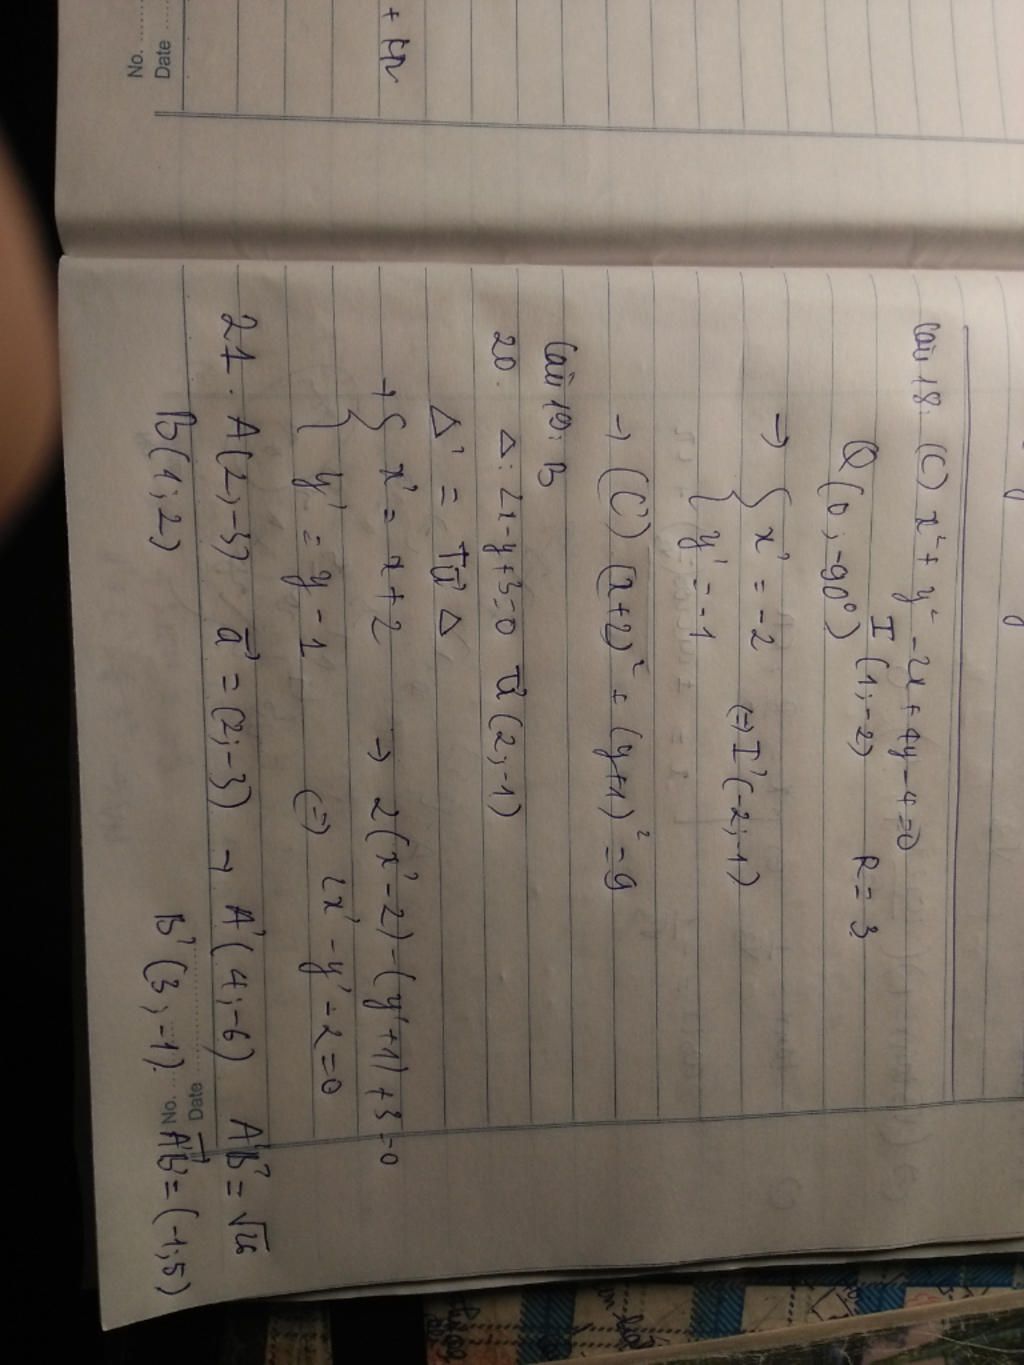 Câu 18. (C) x² + y² - 2x + 4y - 4 = 0
I (1; -2) R = 3
Q (0; -90°)
→ { x' = -2
y' = -1
(=) I' (-2; -1)
→ (C') (x+2)² + (y+1)² = 9
Câu 19: B
20. Δ: 2x - y + 3 = 0 u⃗ (2; -1)
Δ' = Tu⃗ Δ
→ { x' = x + 2 → 2(x' - 2) - (y' + 1) + 3 = 0
y' = y - 1 (=) 2x' - y' - 2 = 0
21. A(2; -3) a⃗ = (2; -3) → A' (4; -6) A'B' = √26
B(1; 2) B' (3; -1) A'B'⃗ = (-1; 5)
No.
Date
No.
Date